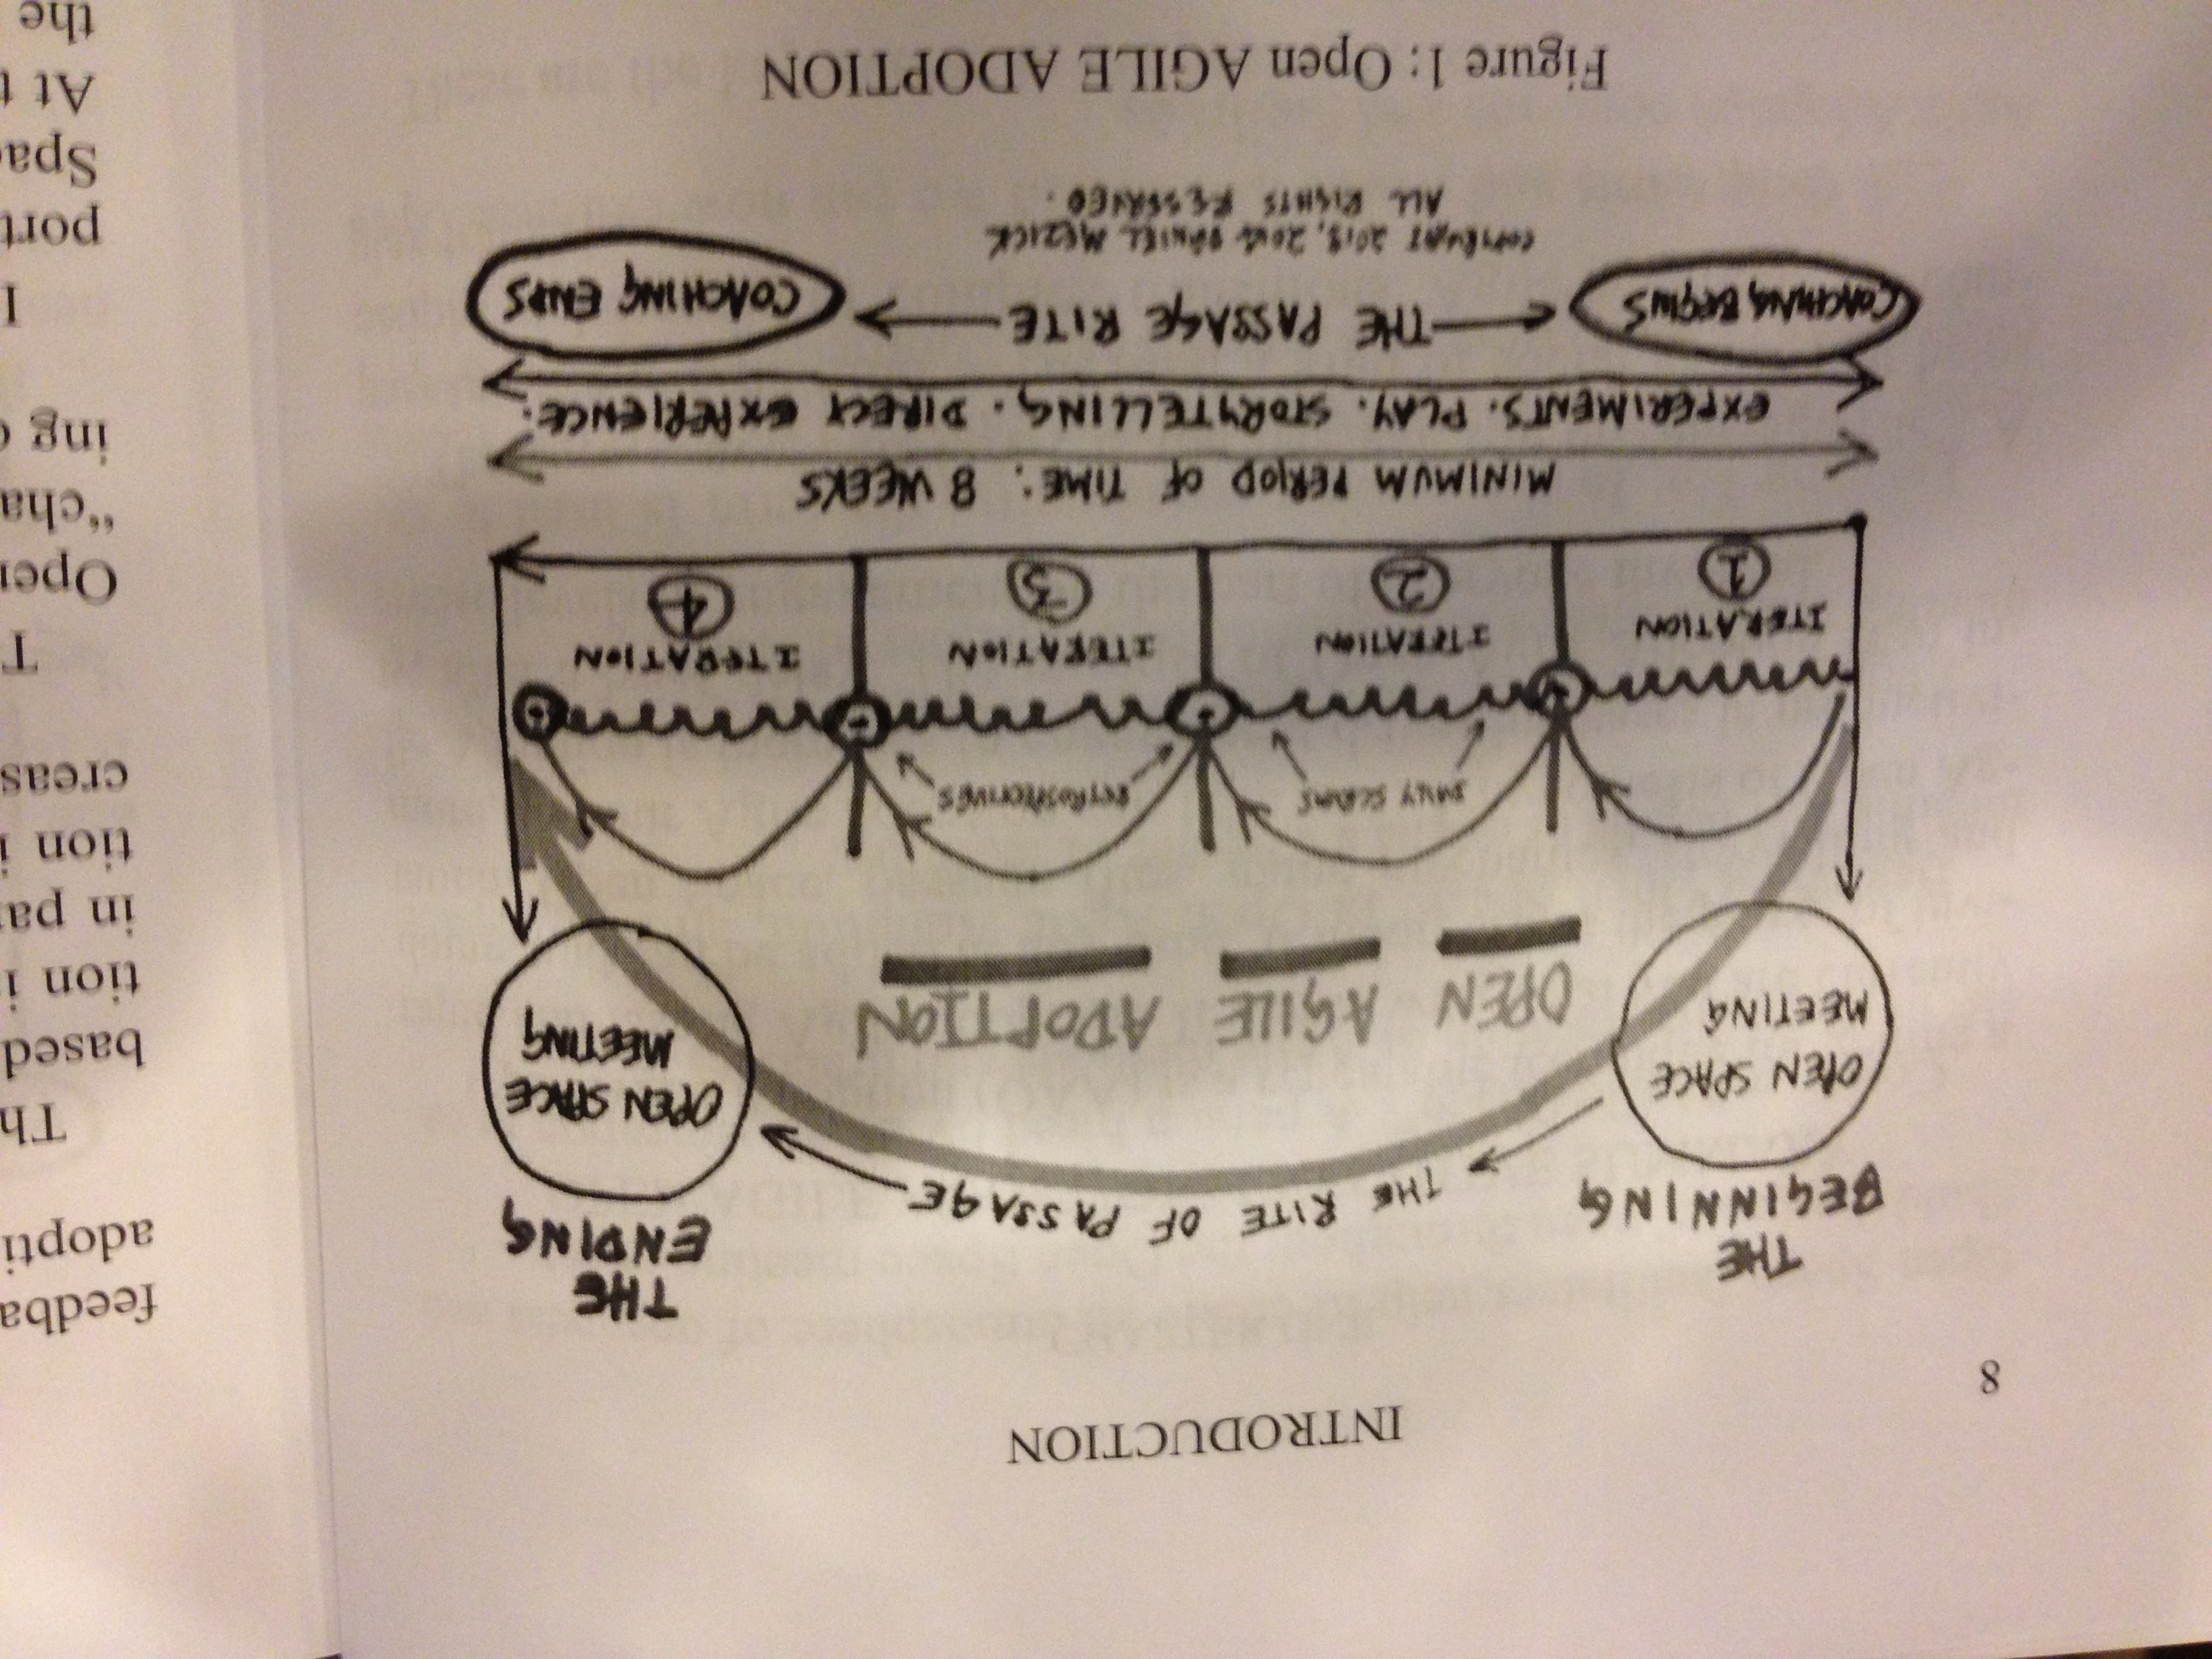 INTRODUCTION
8
THE
BEGINNING
THE RITE OF PASSAGE
THE
ENDING
OPEN SPACE
MEETING
OPEN AGILE ADOPTION
OPEN SPACE
MEETING
DAILY SCRUMS
RETROSPECTIVES
ITERATION
1
ITERATION
2
ITERATION
3
ITERATION
4
MINIMUM PERIOD OF TIME: 8 WEEKS
EXPERIMENTS. PLAY. STORYTELLING. DIRECT EXPERIENCE.
COACHING BEGINS
THE PASSAGE RITE
COACHING ENDS
COPYRIGHT 2013, DANIEL MEZICK
ALL RIGHTS RESERVED.
Figure 1: Open AGILE ADOPTION
feedba
adopti
Th
based
tion i
in pa
tion i
creas
T
Ope
"cha
ing
I
port
Spa
At t
the